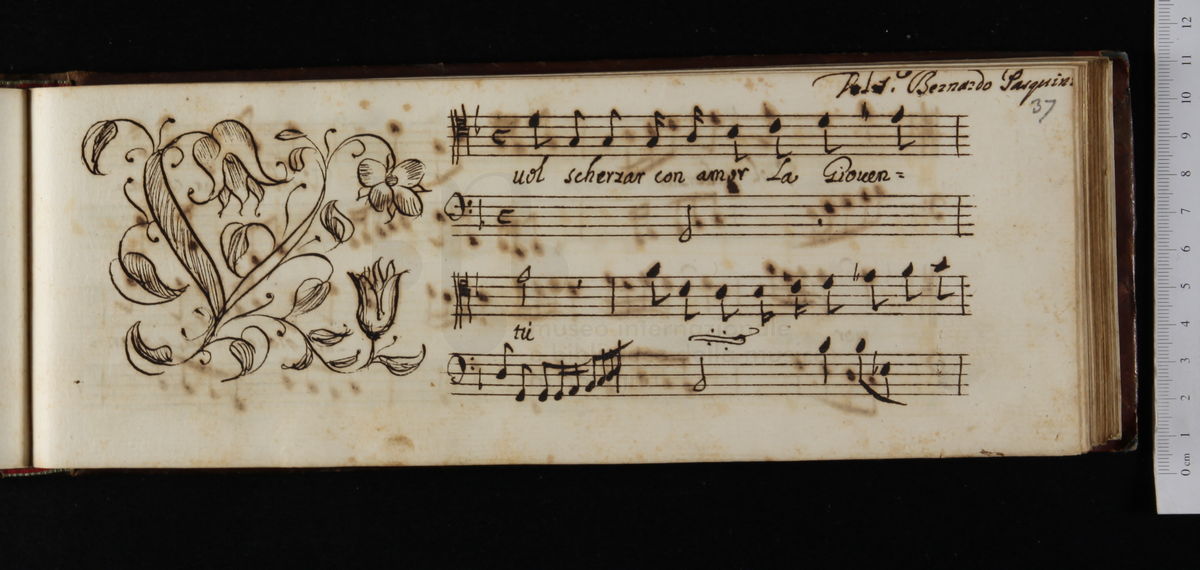 Del S.r Bernardo Pasquini
37
V
uol scherzar con amor La Giouen=
tù
museo internazionale
12
11
10
9
8
7
6
5
4
3
2
1
0 cm